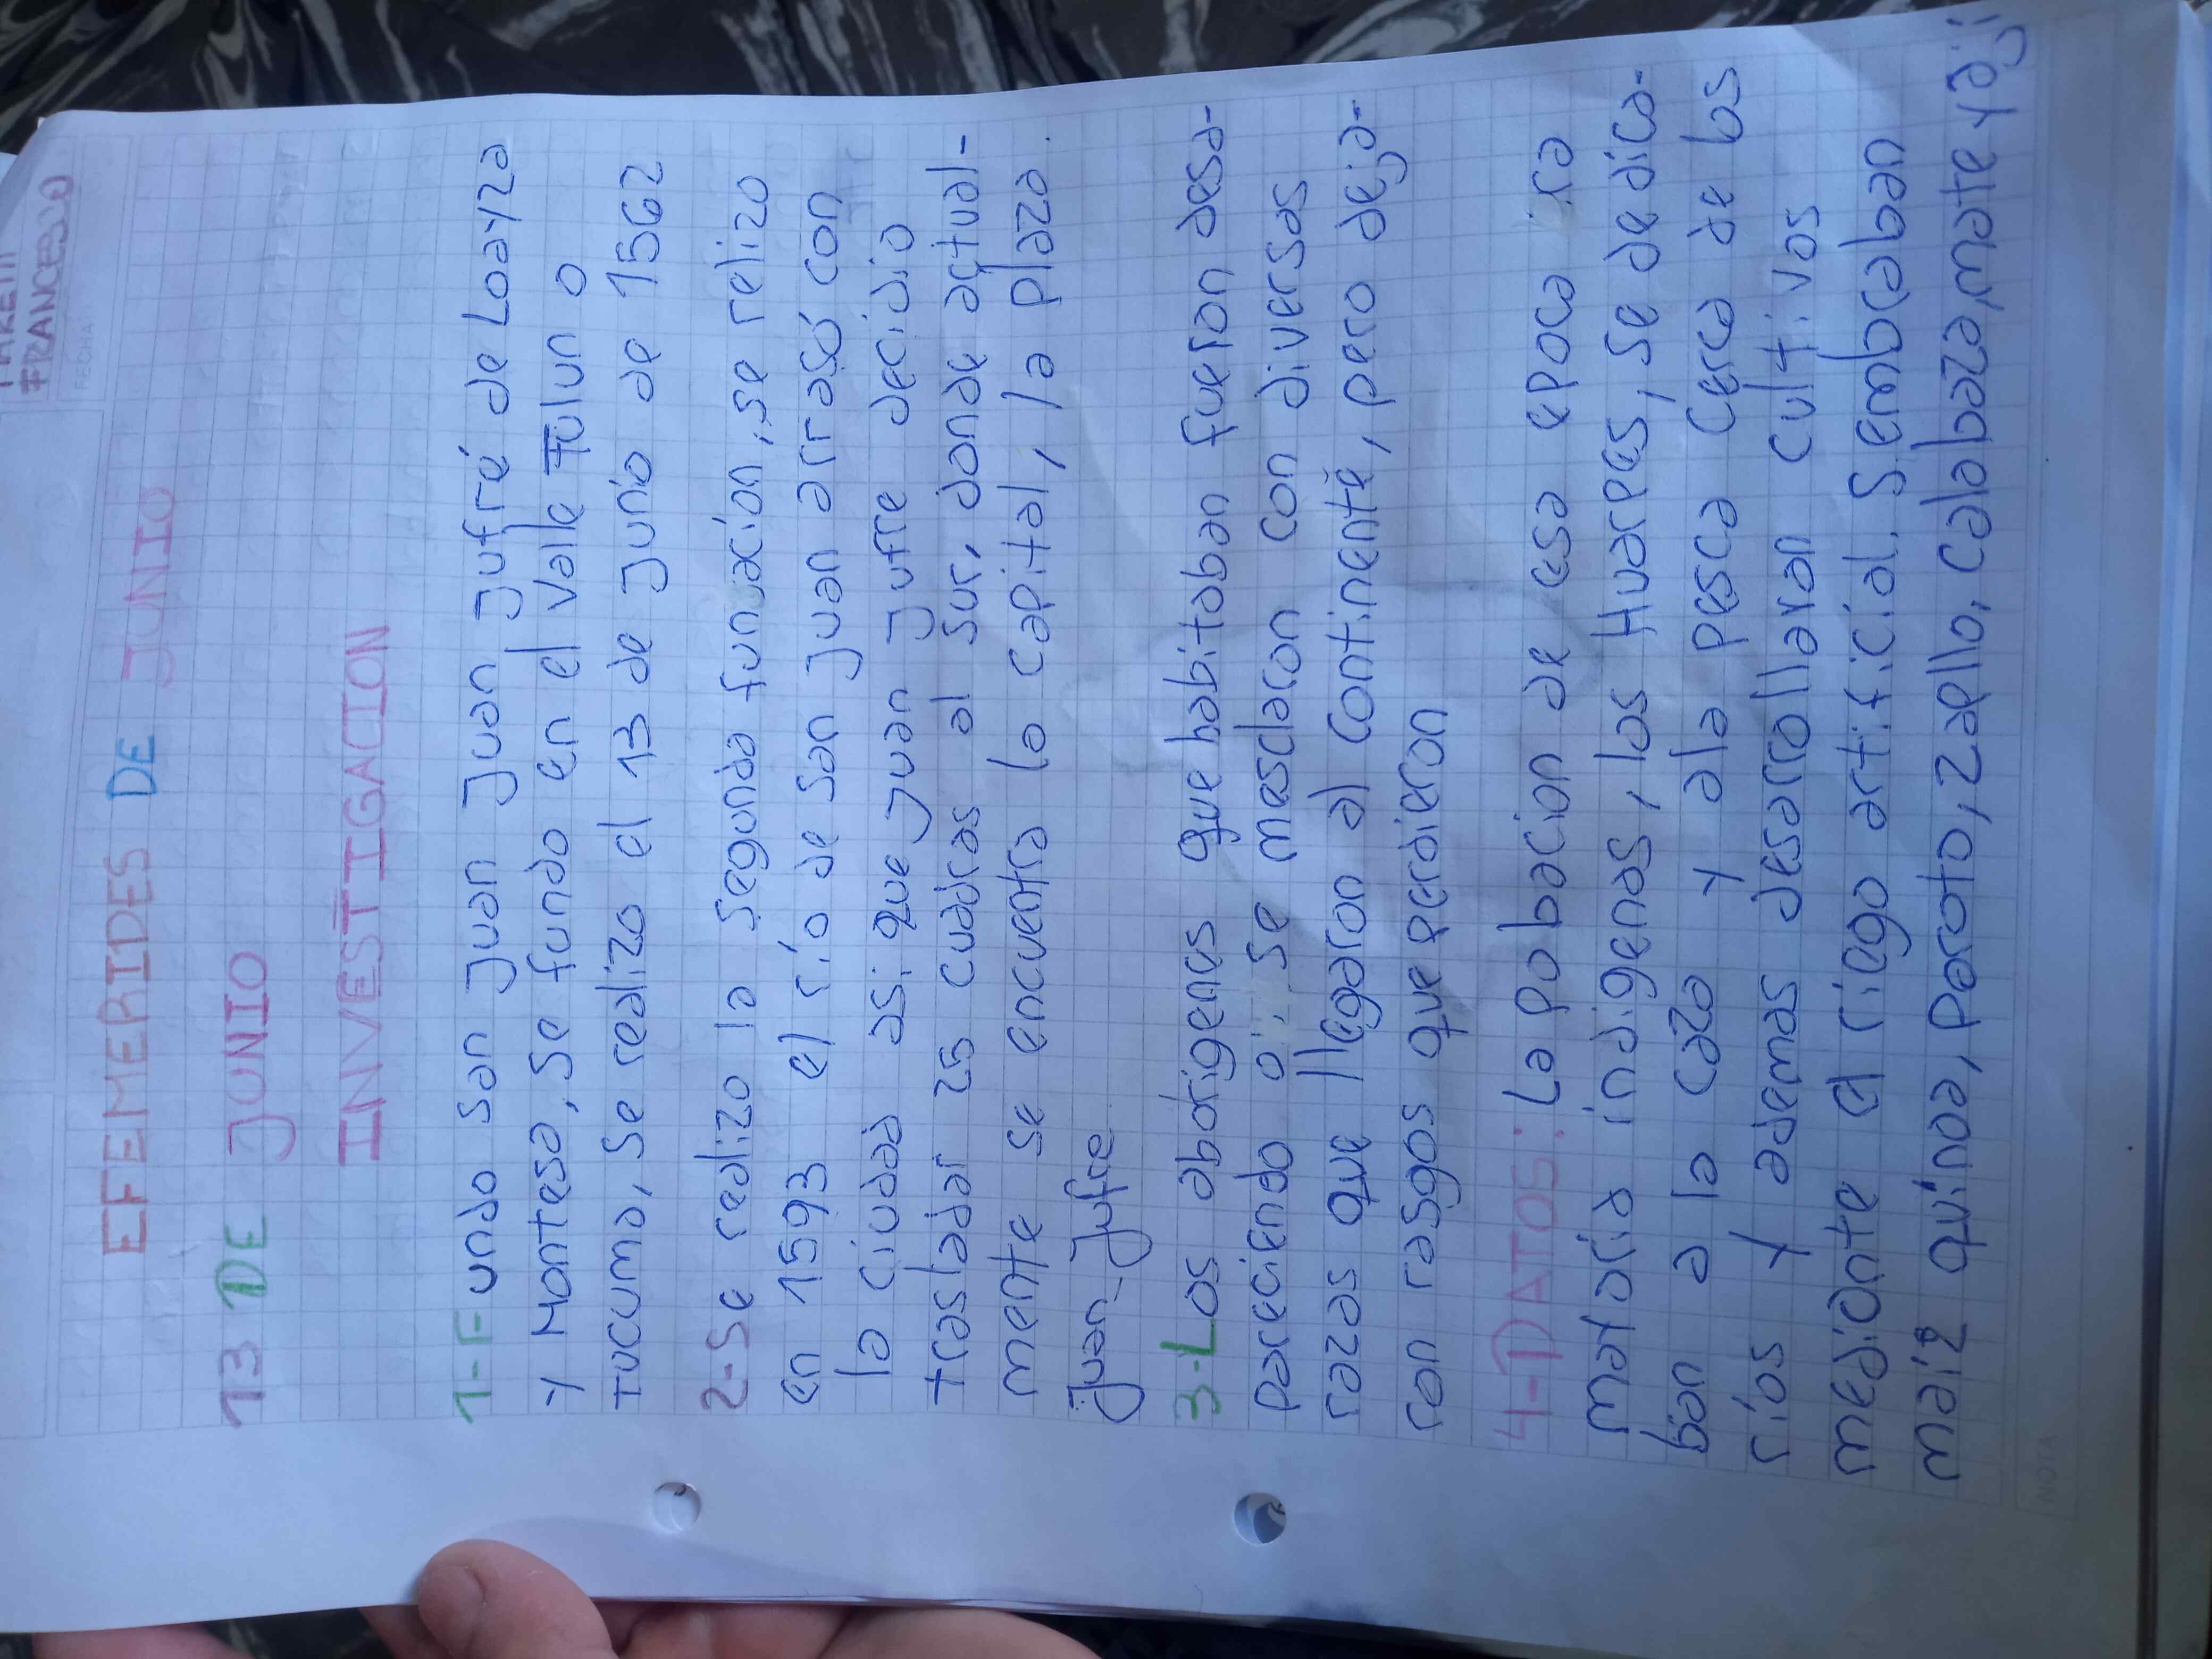 FRANCESCO
FECHA
EFEMERIDES DE JUNIO
13 DE JUNIO
INVESTIGACION
1-Fundo san Juan Juan Jufré de Loayza
y Montesa, se fundo en el valle Tulun o
tucuma, se realizo el 13 de Junio de 1562
2-Se realizo la segunda fundacion, se relizo
en 1593 el río de san Juan arrasó con
la ciudad asi que Juan Jufre decidio
trasladar 25 cuadras al sur, donde actual-
mente se encuentra la capital, la plaza
Juan Jufre
3-Los aborigenes que habitaban fueron desa-
pareciendo o se mesclaron con diversas
razas que llegaron al continente, pero deja-
ron rasgos que perdieron
4-DATOS: La pobacion de esa epoca ira
mayoria indigenas, los Huarpes, se dedica-
ban a la caza y ala pesca cerca de los
ríos y ademas desarrollaron cultivos
mediante el riego artificial. Sembraban
maiz quinoa, poroto, zapllo, calabaza, mate y aji
NOTA